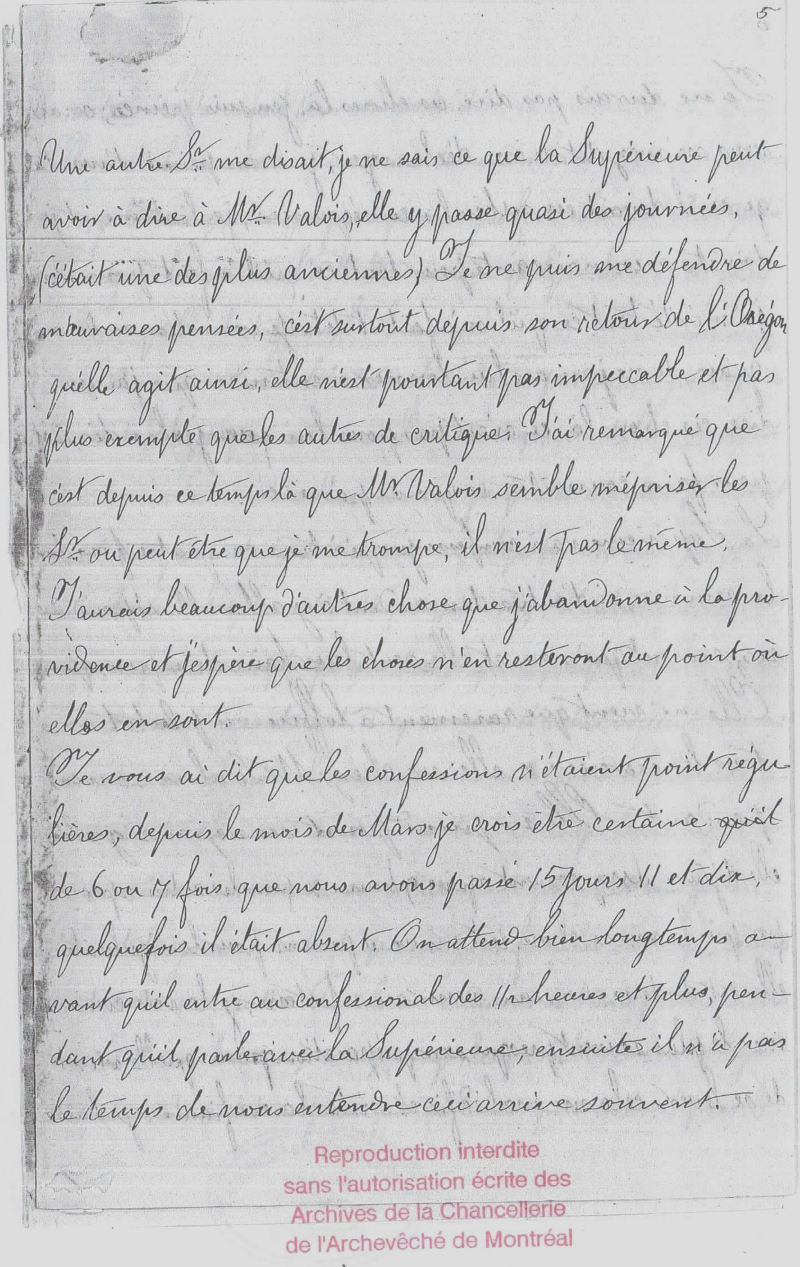 5
Une autre Sr. me disait, je ne sais ce que la Supérieure peut
avoir à dire à Mr. Valois, elle y passe quasi des journées,
(c'était une des plus anciennes) Je ne puis me défendre de
mauvaises pensées, c'est surtout depuis son retour de l'Orégon
qu'elle agit ainsi, elle n'est pourtant pas impeccable et pas
plus exempte que les autres de critique. J'ai remarqué que
c'est depuis ce temps là que Mr. Valois semble mépriser les
Sr. ou peut être que je me trompe, il n'est pas le même.
J'aurais beaucoup d'autres chose que j'abandonne à la pro-
vidence et j'espère que les choses n'en resteront au point où
elles en sont.
Je vous ai dit que les confessions n'étaient point régu
lières, depuis le mois de Mars je crois être certaine qu'il
de 6 ou 7 fois que nous avons passé 15 jours 11 et dix,
quelquefois il était absent. On attend bien longtemps a-
vant qu'il entre au confessional des 1/2 heures et plus, pen-
dant qu'il parle avec la Supérieure, ensuite il n'a pas
le temps de nous entendre ceci arrive souvent.
Reproduction interdite
sans l'autorisation écrite des
Archives de la Chancellerie
de l'Archevêché de Montréal